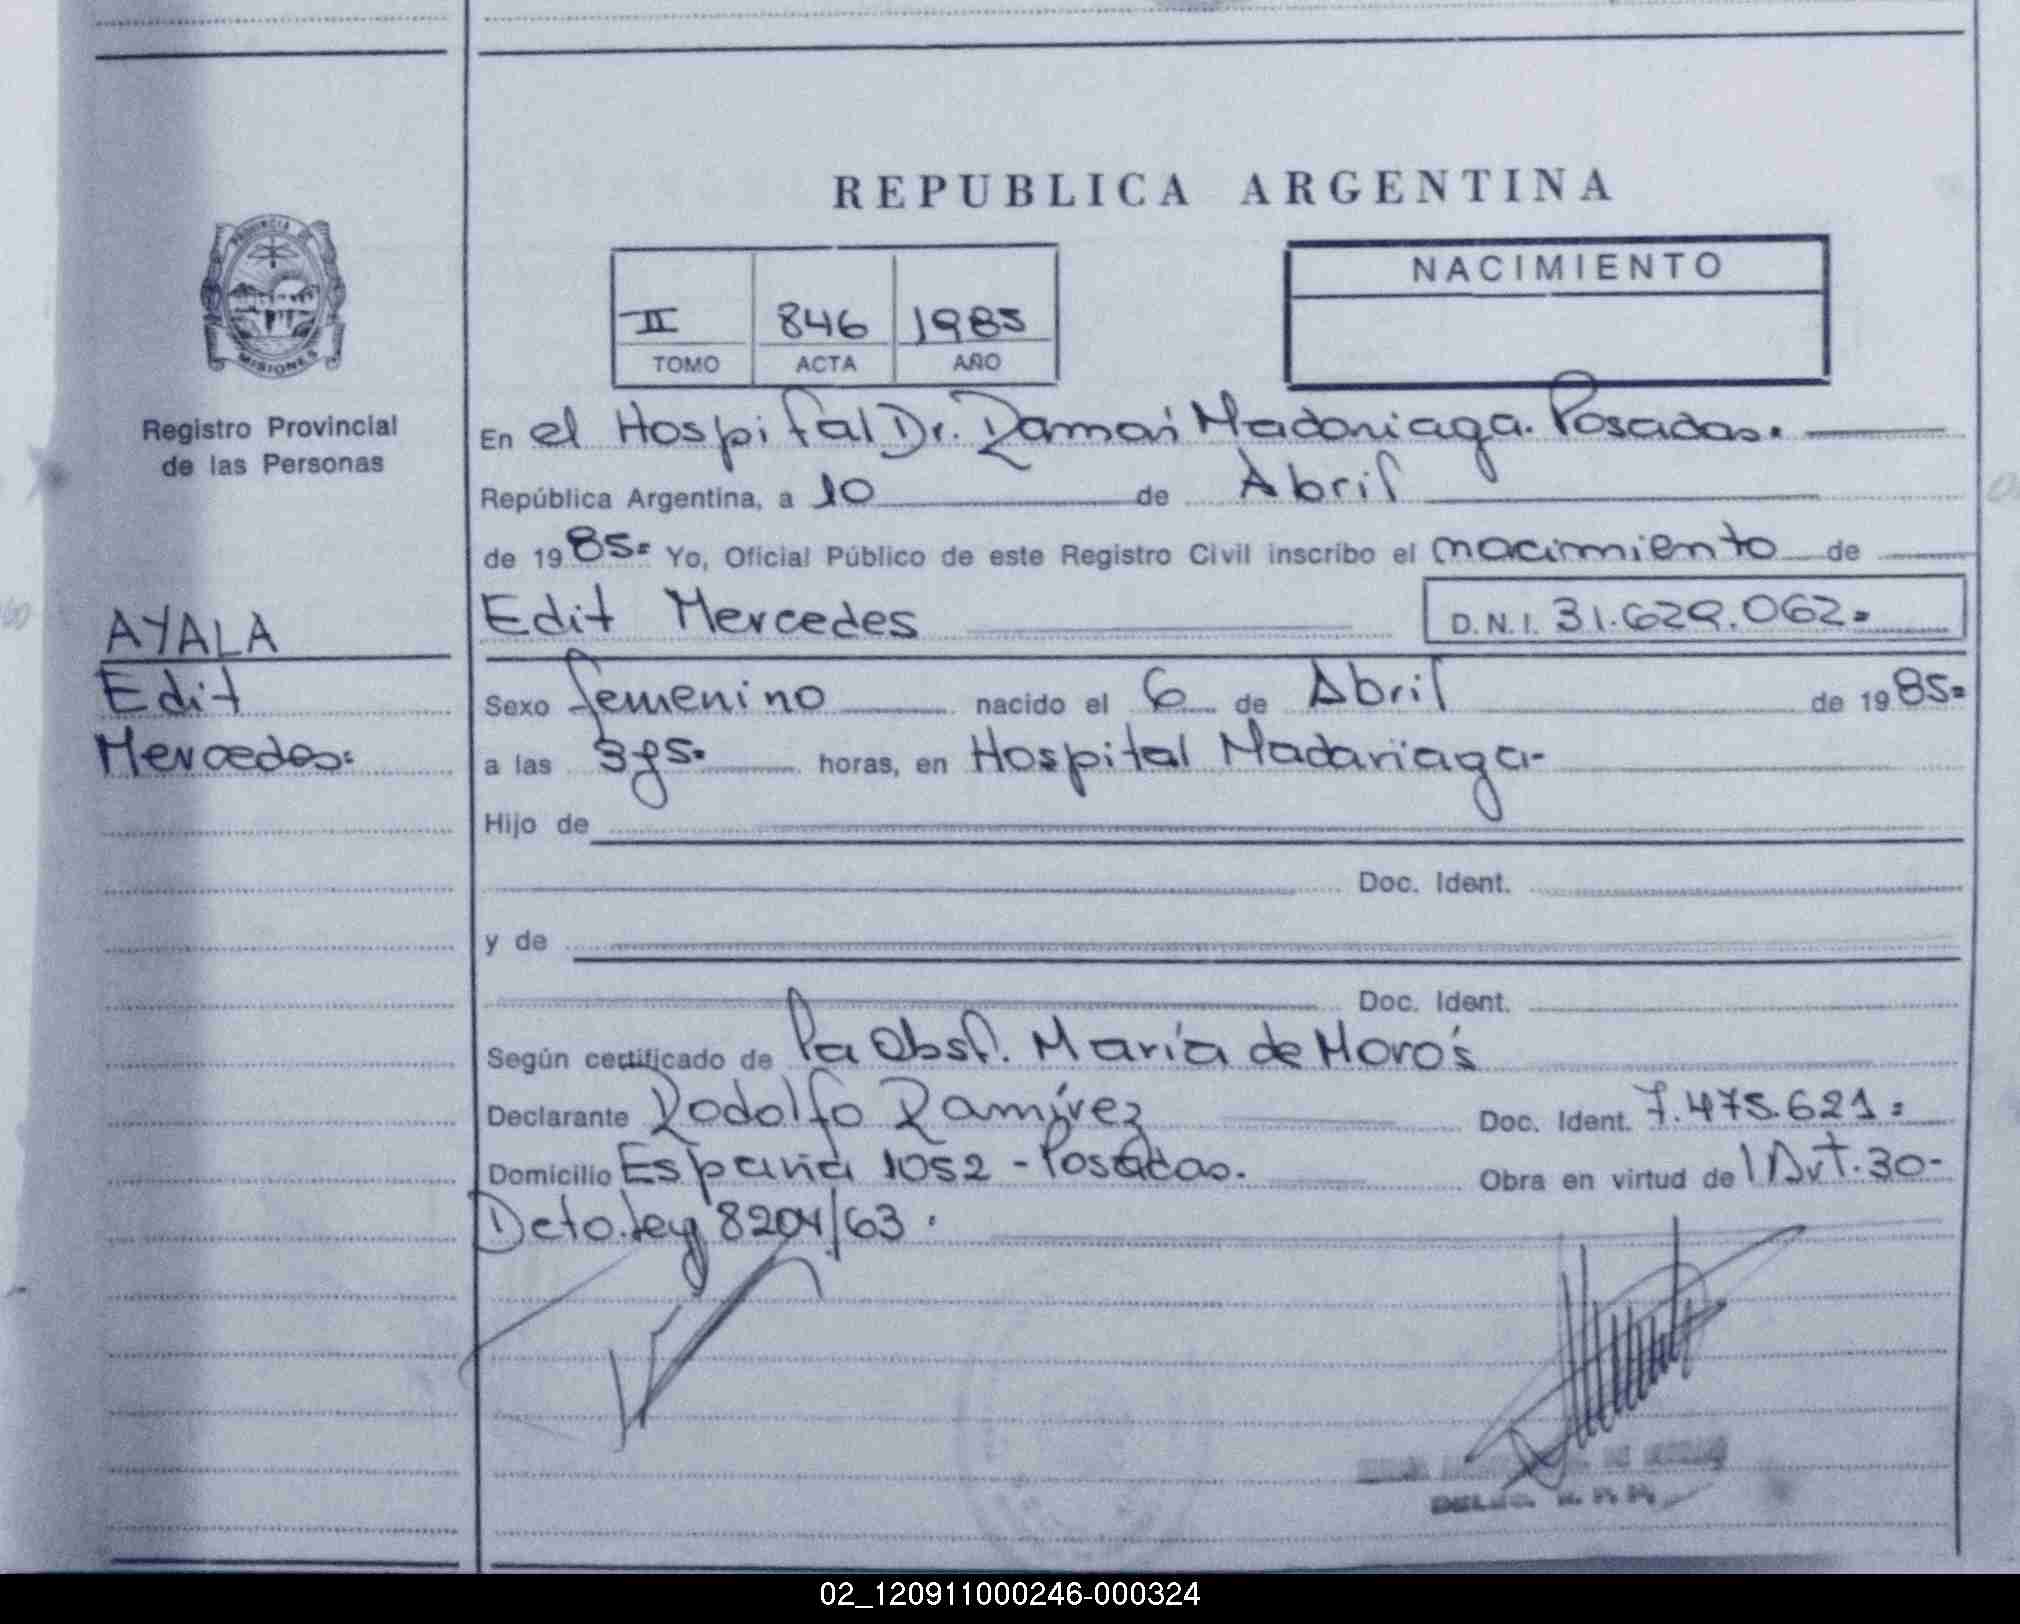 REPUBLICA ARGENTINA
PROVINCIA DE
MISIONES
Registro Provincial
de las Personas
II 846 1985
TOMO ACTA AÑO
NACIMIENTO
En el Hospital Dr. Ramón Madariaga. Posadas.
República Argentina, a 10 de Abril
de 1985= Yo, Oficial Público de este Registro Civil inscribo el nacimiento de
Edit Mercedes D.N.I. 31.629.062=
AYALA
Edit
Mercedes=
Sexo femenino nacido el 6 de Abril de 1985=
a las horas, en Hospital Madariaga-
Hijo de
Doc. Ident.
y de
Doc. Ident.
Según certificado de la Obst. María de
Declarante Rodolfo Ramírez Doc. Ident. 7.475.621=
Domicilio España 1052 - Posadas. Obra en virtud de Art. 30-
Dcto. Ley 8204/63.
02_120911000246-000324